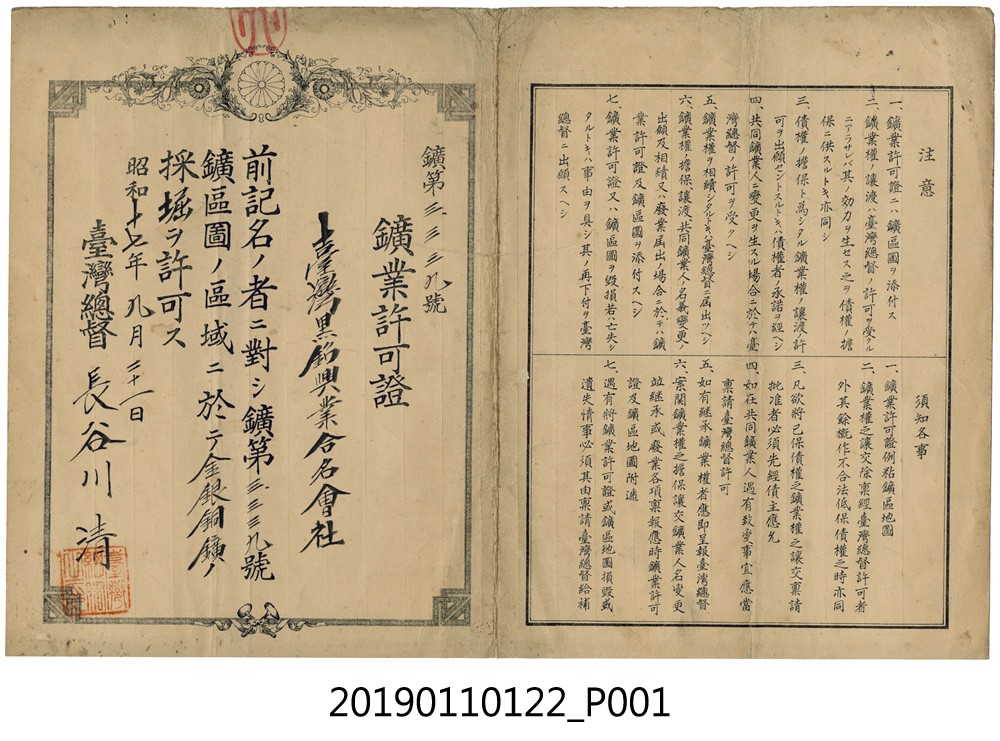 注意
一、鑛業許可證ニハ鑛區圖ヲ添付ス
二、鑛業權ノ讓渡ハ臺灣總督ノ許可ヲ受クル
ニアラサレバ其ノ効力ヲ生セス之ヲ債權ノ擔
保ニ供スルトキ亦同シ
三、債權ノ擔保ト為シタル鑛業權ノ讓渡ノ許
可ヲ出願セントスルトキハ債權者ノ承諾ヲ經ヘシ
四、共同鑛業人ニ變更ヲ生スル場合ニ於テハ臺
灣總督ノ許可ヲ受クヘシ
五、鑛業權ヲ相續シタルトキハ臺灣總督ニ屆出ツヘシ
六、鑛業權ノ擔保讓渡、共同鑛業人ノ名義變更ノ
出願及相續又ハ廢業屆出ノ場合ニ於テハ鑛
業許可證及鑛區圖ヲ添付スヘシ
七、鑛業許可證又ハ鑛區圖ヲ毀損若ハ亡失シ
タルトキハ事由ヲ具シ其ノ再下付ヲ臺灣
總督ニ出願スヘシ
須知各事
一、鑛業許可證例粘鑛區地圖
二、鑛業權之讓交除稟經臺灣總督許可者
外其餘概作不合法低保債權之時亦同
三、凡欲將已保債權之鑛業權之讓交稟請
批准者必須先經債主應允
四、如在共同鑛業人遇有致變事宜應當
稟請臺灣總督許可
五、如有継承鑛業權者應即呈報臺灣總督
六、案關鑛業權之擔保讓交鑛業人名變更
並継承或廢業各項稟報應時鑛業許可
證及鑛區地圖附遞
七、遇有將鑛業許可證或鑛區地圖損毀或
遺失情事必須具由稟請臺灣總督給補
鑛第三、三三九號
鑛業許可證
臺灣黒鉛興業合名會社
前記名ノ者ニ對シ鑛第三、三三九號
鑛區圖ノ區域ニ於テ金銀銅鑛ノ
採堀ヲ許可ス
昭和十七年九月二十一日
臺灣總督 長谷川清
20190110122_P001